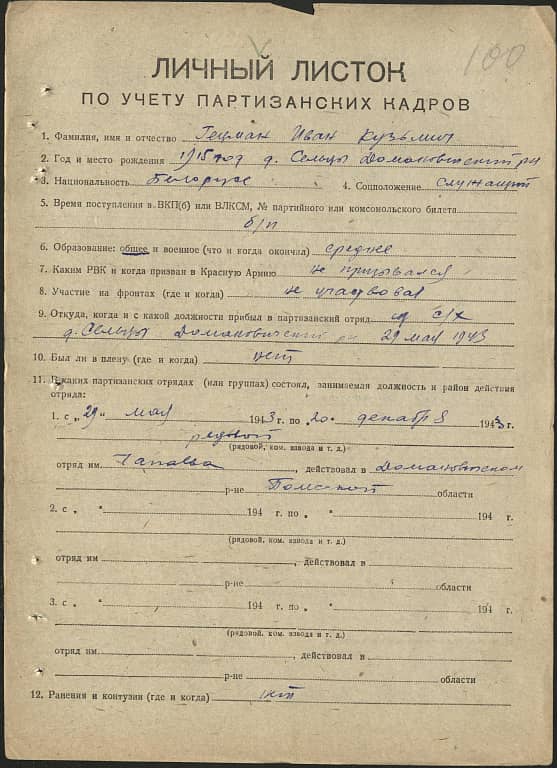 100
ЛИЧНЫЙ ЛИСТОК
ПО УЧЕТУ ПАРТИЗАНСКИХ КАДРОВ
1. Фамилия, имя и отчество Гецман Иван Кузьмич
2. Год и место рождения 1915 год д. Сельцы Домановичский р-н
3. Национальность Белорус 4. Соцположение служащий
5. Время поступления в ВКП(б) или ВЛКСМ, № партийного или комсомольского билета
б/п
6. Образование: общее и военное (что и когда окончил) среднее
7. Каким РВК и когда призван в Красную Армию не призывался
8. Участие на фронтах (где и когда) не участвовал
9. Откуда, когда и с какой должности прибыл в партизанский отряд с/х
д. Сельцы Домановичский р-н 29 мая 1943
10. Был ли в плену (где и когда) нет
11. В каких партизанских отрядах (или группах) состоял, занимаемая должность и район действия
отряда:
1. с „29“ мая 1943 г. по „20“ декабря 1943 г.
рядовой
(рядовой, ком. взвода и т. д.)
отряд им. Чапаева, действовал в Домановичском
р-не Полесской области
2. с „ “ 194 г. по „ “ 194 г.
(рядовой, ком. взвода и т. д.)
отряд им, действовал в
р-не области
3. с „ “ 194 г. по „ “ 194 г.
(рядовой, ком. взвода и т. д.)
отряд им., действовал в
р-не области
12. Ранения и контузии (где и когда) нет